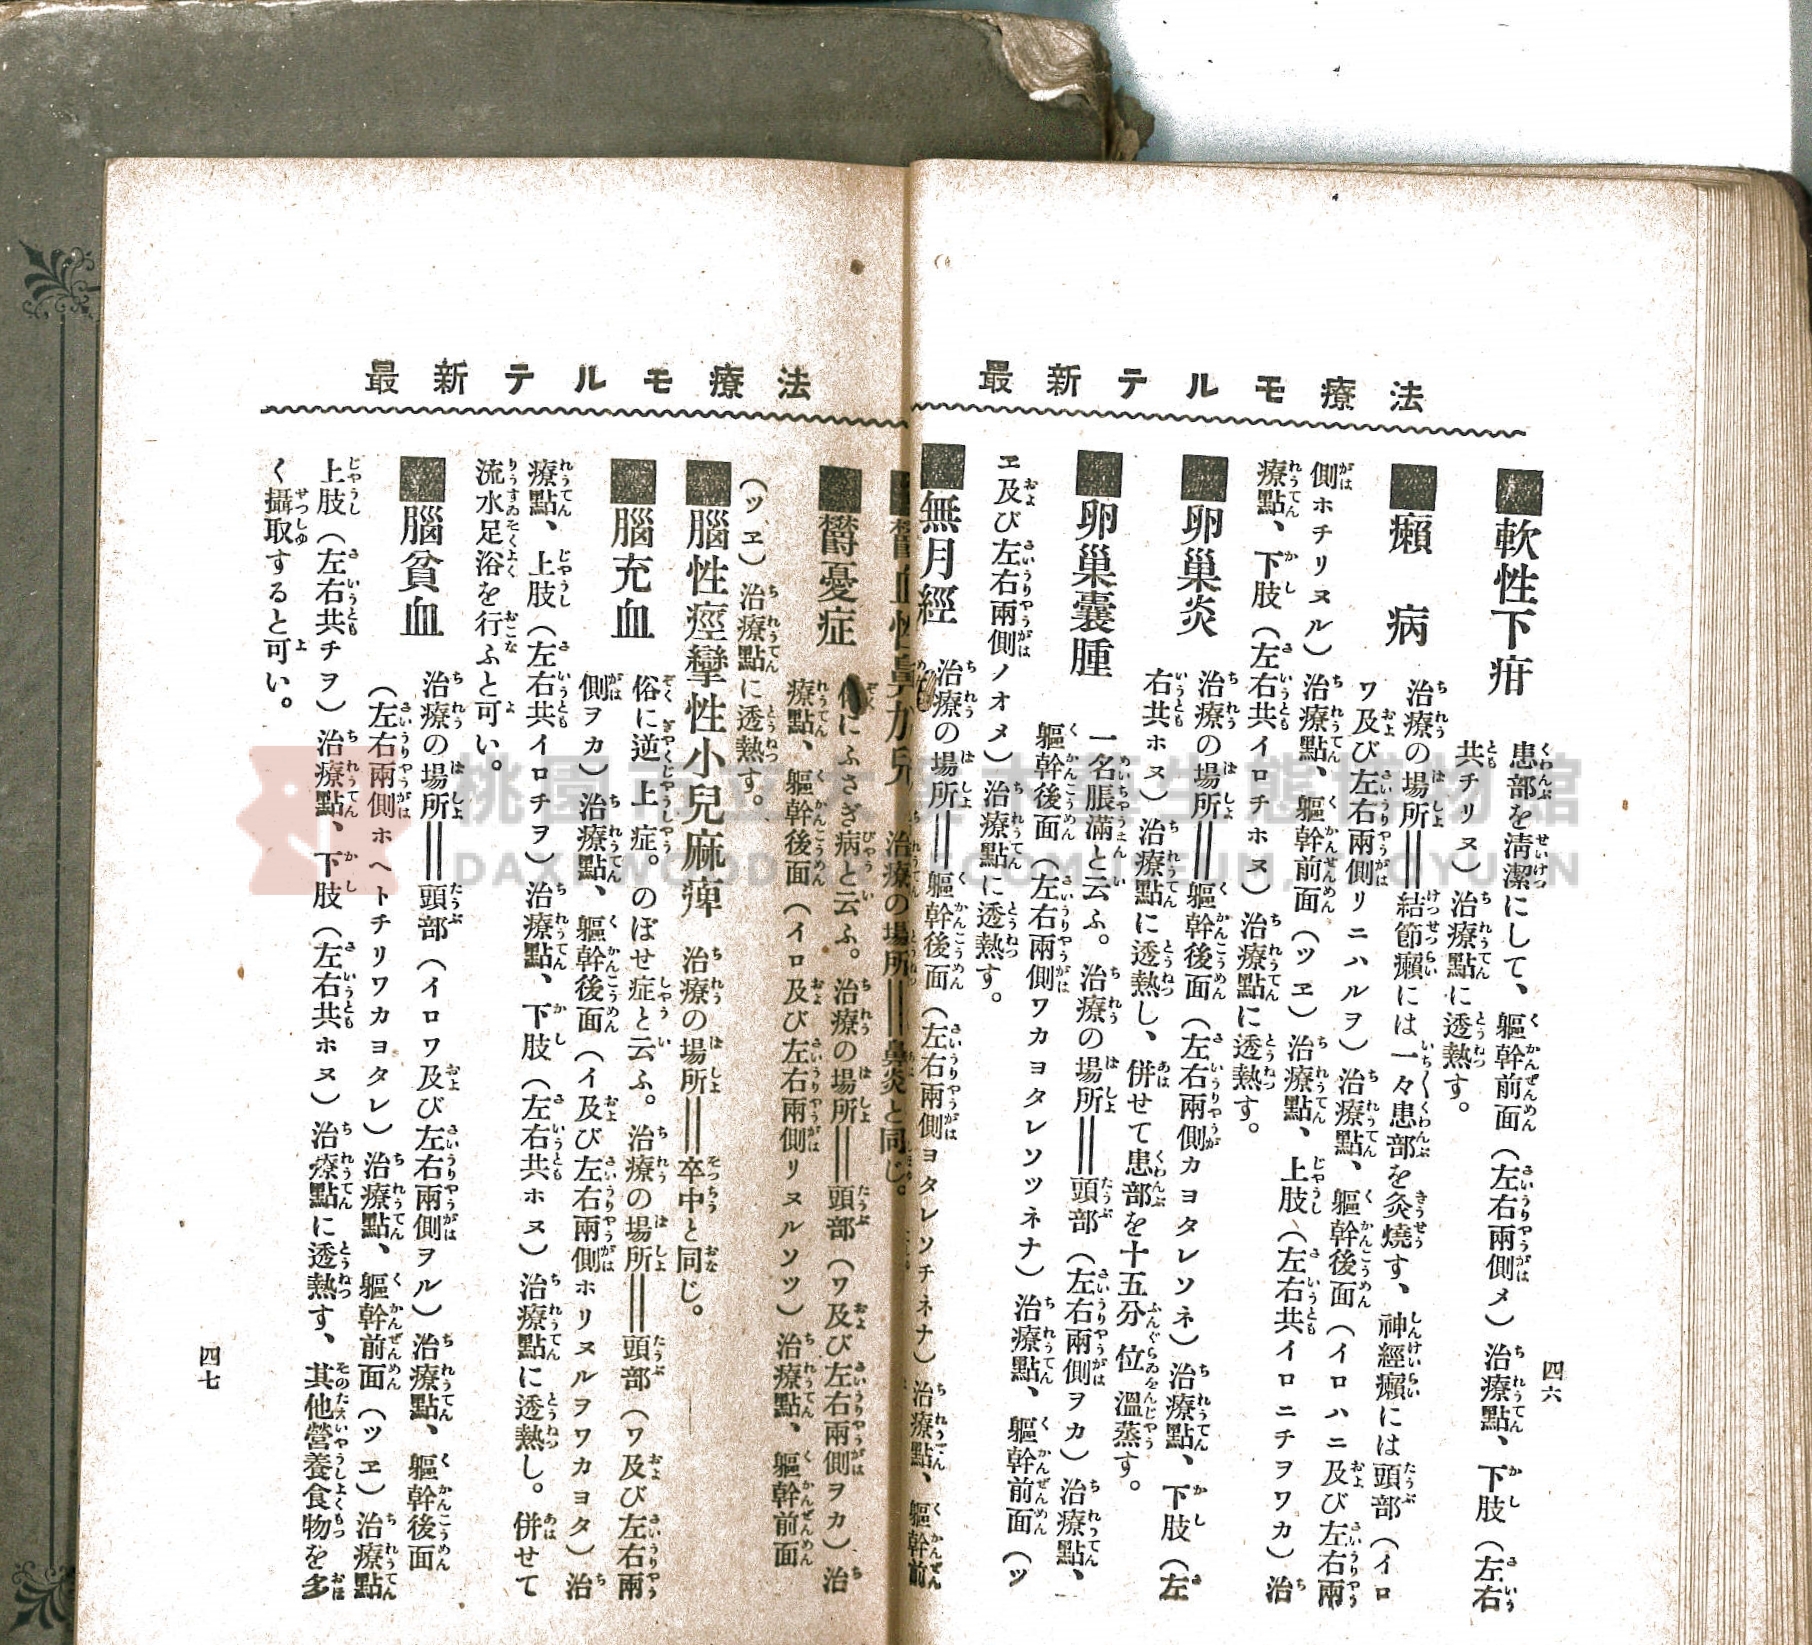 最新テルモ療法
■軟性下疳 患部を清潔にして、軀幹前面（左右兩側メ）治療點、下肢（左右
共チリヌ）治療點に透熱す。
■癩病 治療の場所＝結節癩には一々患部を灸燒す、神經癩には頭部（イロ
ワ及び左右兩側リニハルヲ）治療點、軀幹後面（イロハニ及び左右兩
側ホチリヌル）治療點、軀幹前面（ツヱ）治療點、上肢（左右共イロニチヲワカ）治
療點、下肢（左右共イロチホヌ）治療點に透熱す。
■卵巢炎 治療の場所＝軀幹後面（左右兩側カヨタレソネ）治療點、下肢（左
右共ホヌ）治療點に透熱し、併せて患部を十五分位溫蒸す。
■卵巢囊腫 一名脹滿と云ふ。治療の場所＝頭部（左右兩側ヲカ）治療點、
軀幹後面（左右兩側ワカヨタレソツネナ）治療點、軀幹前面（ツ
ヱ及び左右兩側ノオメ）治療點に透熱す。
■無月經 治療の場所＝軀幹後面（左右兩側ヨタレソチネナ）治療點、軀幹前
四六
最新テルモ療法
治療の場所＝鼻炎と同じ。
■欝憂症 俗にふさぎ病と云ふ。治療の場所＝頭部（ワ及び左右兩側ヲカ）治
療點、軀幹後面（イロ及び左右兩側リヌルソツ）治療點、軀幹前面
（ツヱ）治療點に透熱す。
■腦性痙攣性小兒麻痺 治療の場所＝卒中と同じ。
■腦充血 俗に逆上症。のぼせ症と云ふ。治療の場所＝頭部（ワ及び左右兩
側ヲカ）治療點、軀幹後面（イ及び左右兩側ホリヌルヲワカヨタ）治
療點、上肢（左右共イロチヲ）治療點、下肢（左右共ホヌ）治療點に透熱し。併せて
流水足浴を行ふと可い。
■腦貧血 治療の場所＝頭部（イロワ及び左右兩側ヲル）治療點、軀幹後面
（左右兩側ホヘトチリワカヨタレ）治療點、軀幹前面（ツヱ）治療點
上肢（左右共チヲ）治療點、下肢（左右共ホヌ）治療點に透熱す、其他營養食物を多
く攝取すると可い。
四七
桃園市立大溪木藝生態博物館
DAXI WOOD ART ECOMUSEUM, TAOYUAN